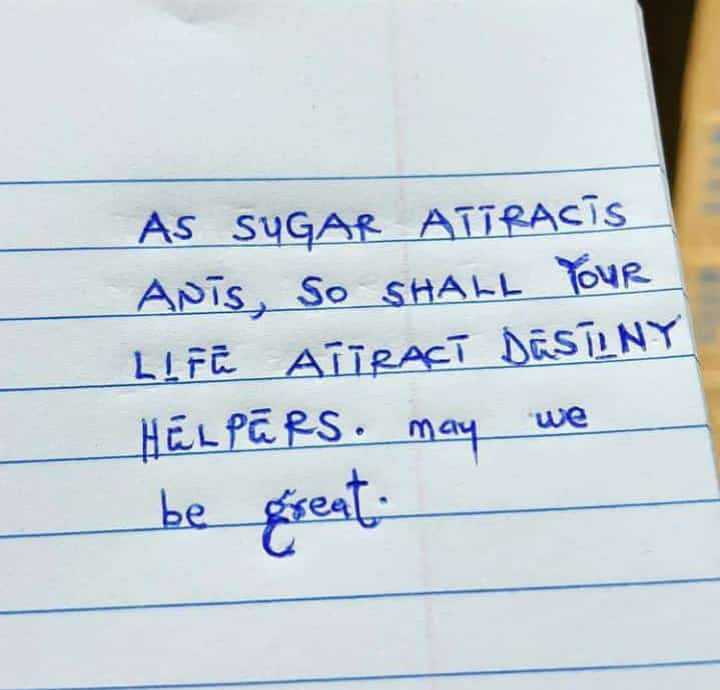 AS SUGAR ATTRACTS
ANTS, SO SHALL YOUR
LIFE ATTRACT DESTINY
HELPERS. may we
be great.